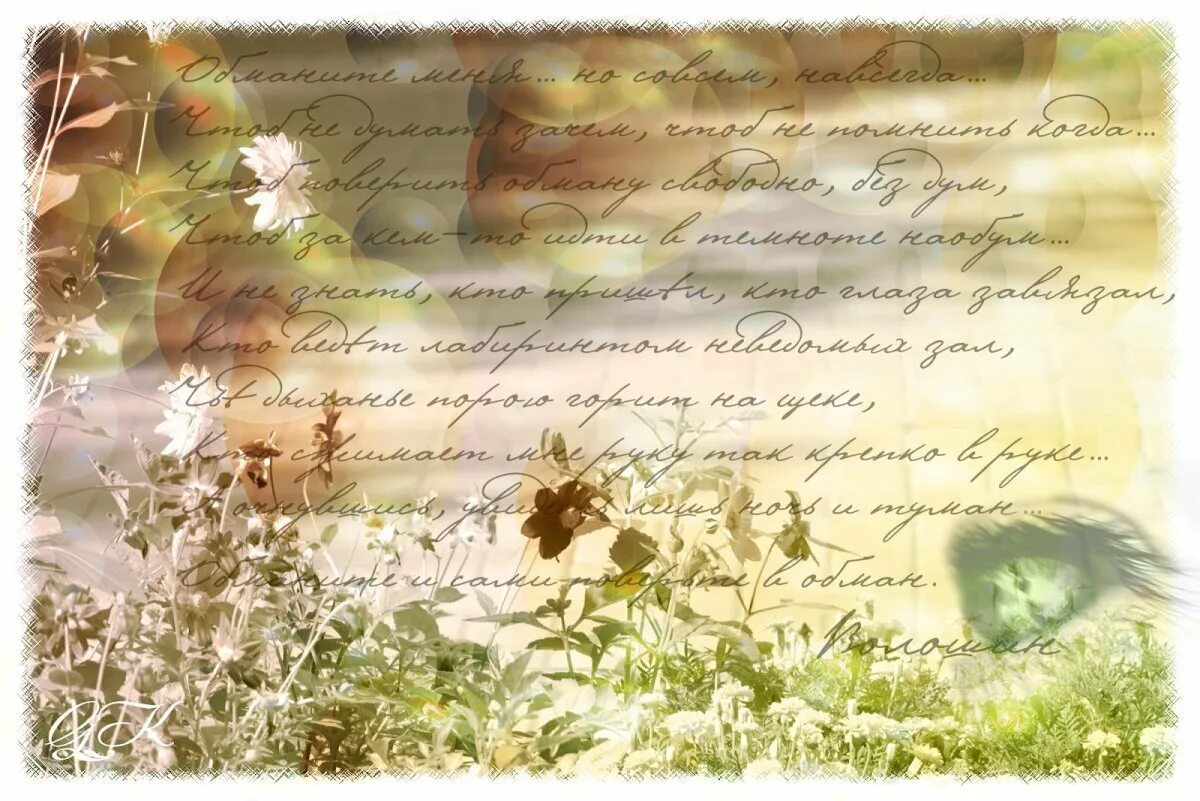 Обманите меня... но совсем, навсегда...
Чтоб не думать зачем, чтоб не помнить когда...
Чтоб поверить обману свободно, без дум,
Чтоб за кем-то идти в темноте наобум...
И не знать, кто пришёл, кто глаза завязал,
Кто ведёт лабиринтом неведомых зал,
Чьё дыханье порою горит на щеке,
Кто сжимает мне руку так крепко в руке...
А очнувшись, увидеть лишь ночь и туман...
Обманите и сами поверьте в обман.
Волошин